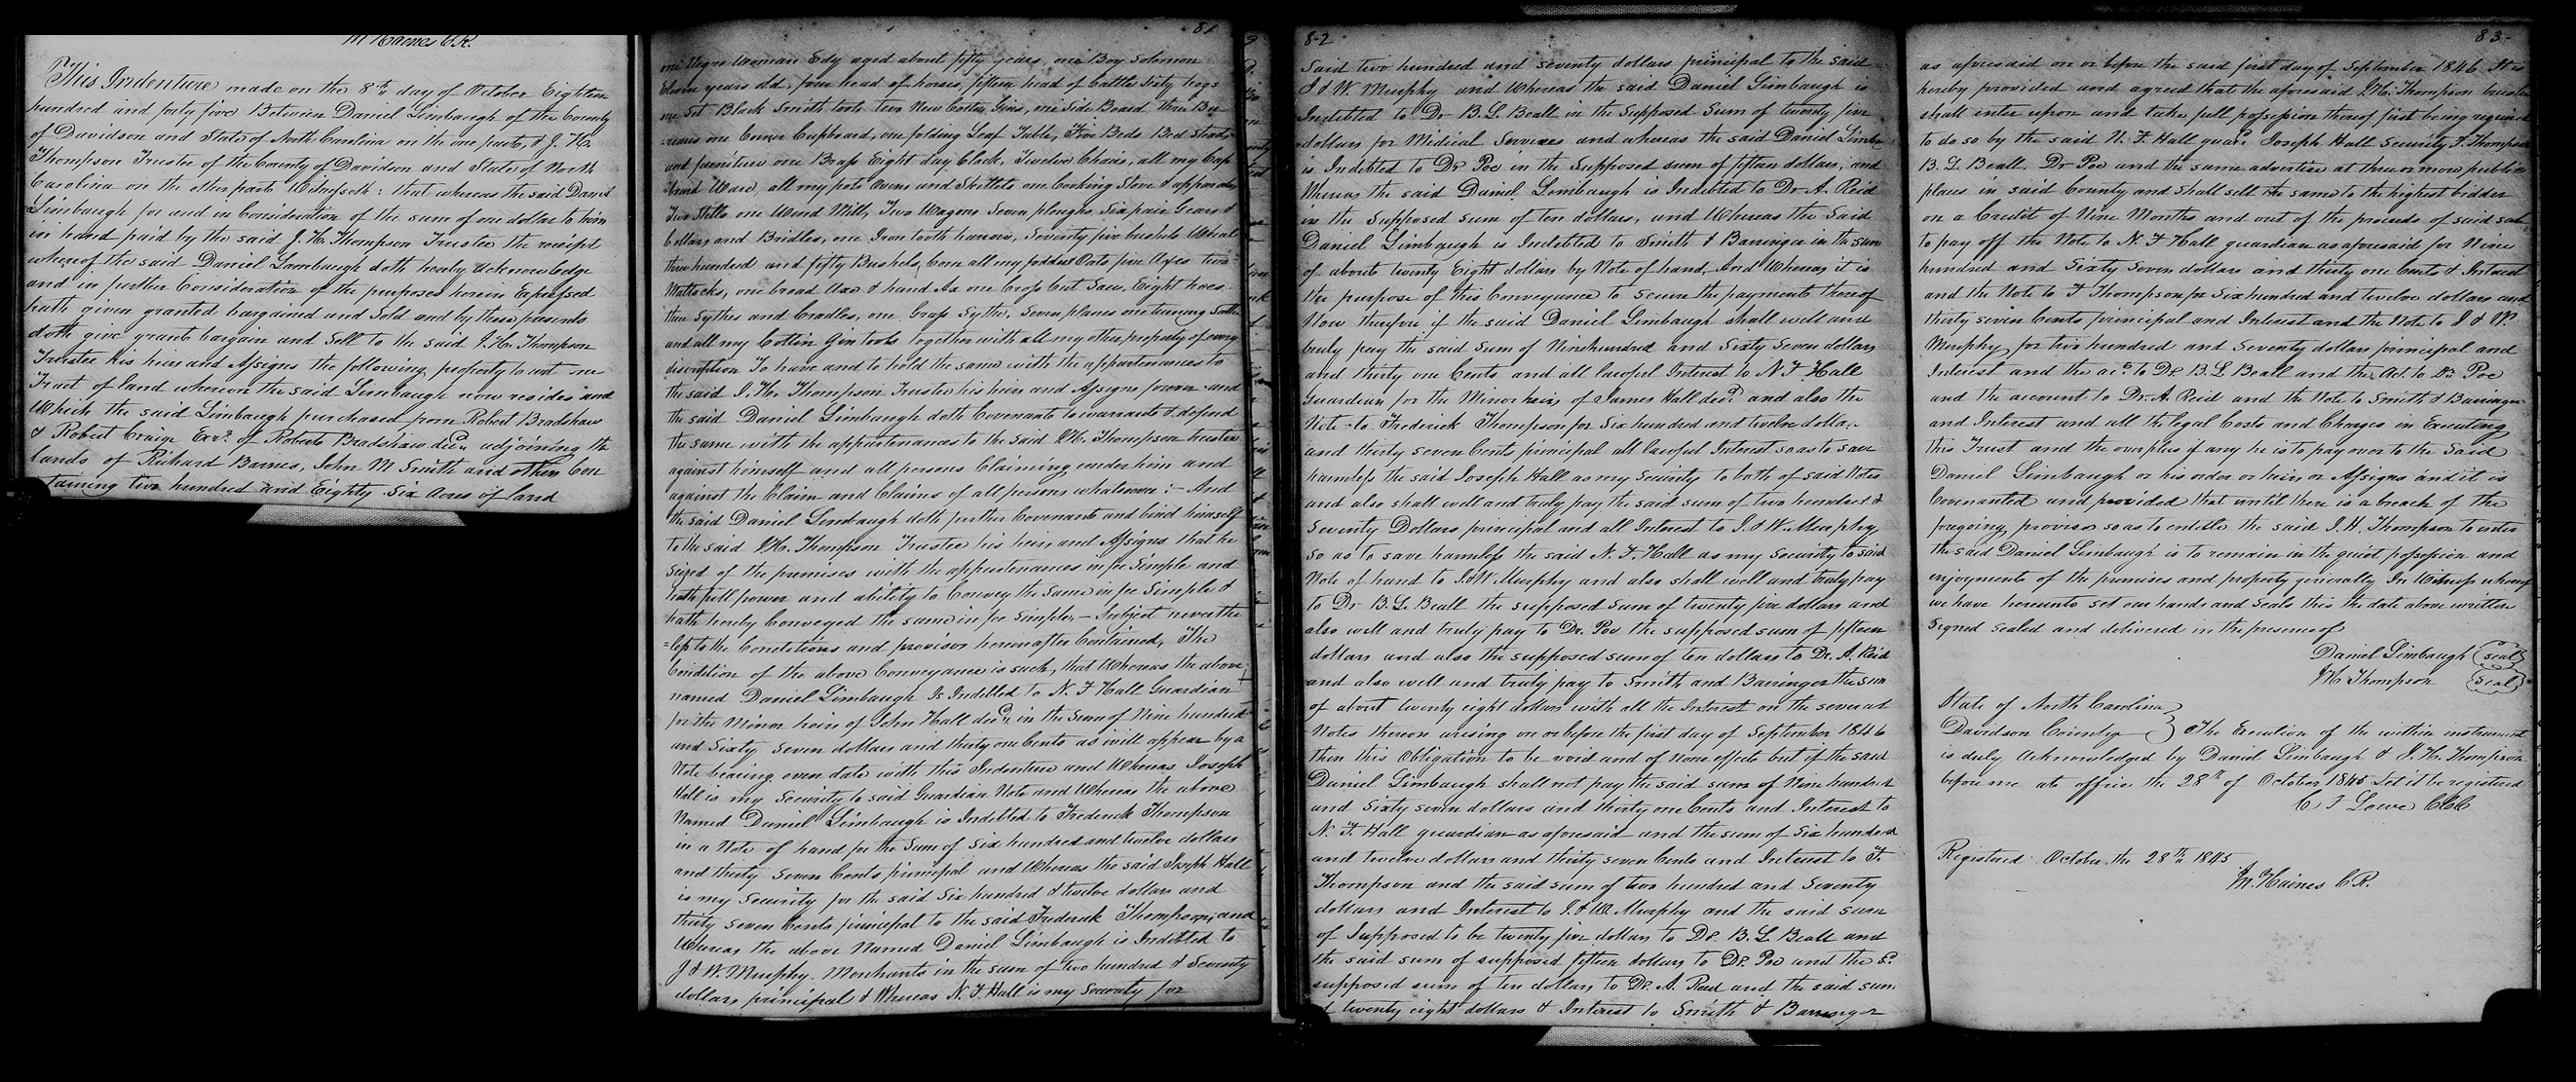 M Haines C.R.
This Indenture made on the 8th day of October Eighteen
hundred and forty five Between Daniel Limbaugh of the County
of Davidson and State of North Carolina on the one parte, & J. H.
Thompson Trustee of the County of Davidson and State of North
Carolina on the other parte Witnesseth: that whereas the said Daniel
Limbaugh for and in Consideration of the sum of one dollar to him
in hand paid by the said J. H. Thompson Trustee the receipt
whereof the said Daniel Lambaugh doth hereby Acknowledge
and in further Consideration of the purposes herein Expressed
hath given granted bargained and Sold and by these presents
doth give grant bargain and Sell to the said J. H. Thompson
Trustee his heirs and Assigns the following property to wit one
Tract of land whereon the said Limbaugh now resides and
Which the said Limbaugh purchased from Robert Bradshaw
& Robert Craige Exr. of Roberts Bradshaw decd. adjoining the
lands of Richard Barnes, John M Smith and others Con
taining two hundred and Eighty Six Acres of land
81
one Negro Woman Edy aged about fifty years, one Boy Solomon
Eleven years old, four head of horses, fifteen head of Cattle Sixty hogs
one Set Black Smith tools two New Cotton Gins, one Side Board three Bu
=reaus one Corner Cupboard, one folding Leaf Table, Five Beds Bed Steads
and furniture one Brass Eight day Clock, Twelve Chairs, all my Cup
=board Ware, all my pots Ovens and Skillets one Cooking Stove &
Two Stills one Wind Mill, Two Wagons Seven ploughs, Six pair Gears &
Collars and Bridles, one Iron tooth harrow, Seventy five bushels Wheat
three hundred and fifty Bushels Corn all my fodder Oats five Axes two
Mattocks, one broad Axe & hand Ax one Cross Cut Saw, Eight hoes
three Sythes and Cradles, one Grass Sythe, Seven planes one turning Lathe
and all my Cotton Gin tools together with all my other property of every
discription To have and to hold the same with the appurtenances to
the said J. H. Thompson Trustee his heirs and Assigns forever and
the said Daniel Limbaugh doth Covenants to warrants & defend
the same with the appurtenances to the said J. H. Thompson trustee
against himself and all persons Claiming under him and
against the Claim and Claims of all persons whatsoever :- And
the said Daniel Limbaugh doth further Covenants and bind himself
to the said J. H. Thompson Trustee his heirs and Assigns that he
Seized of the premises with the appurtenances in fee Simple and
hath full power and ability to Convey the Same in fee Simple &
hath hereby Conveyed the same in fee Simple, - Subject neverthe
=less to the Conditions and provisos hereinafter Contained, The
Condition of the above Conveyance is such, that Whereas the above
named Daniel Limbaugh Is Indebted to N. F Hall Guardian
for the Minor heirs of John Hall decd. in the Sum of Nine hundred
and Sixty Seven dollars and thirty one Cents as will appear by a
Note bearing even date with this Indenture and Whereas Joseph
Hall is my Security to said Guardian Note and Whereas the above
Named Daniel Limbaugh is Indebted to Frederick Thompson
in a Note of hand for the Sum of Six hundred and twelve dollars
and thirty Seven Cents principal and Whereas the said Joseph Hall
is my Security for the said Six hundred & twelve dollars and
thirty Seven Cents principal to the said Frederick Thompson; and
Whereas the above Named Daniel Limbaugh is Indebted to
J & W. Murphy Merchants in the sum of two hundred & Seventy
dollars principal & Whereas N. F Hall is my Security for
82
Said two hundred and seventy dollars principal to the said
J & W. Murphy and Whereas the said Daniel Limbaugh is
Indebted to Dr B. L. Beall in the Supposed Sum of twenty five
dollars for Midical Services and whereas the said Daniel Limba
is Indebted to Dr Poe in the Supposed sum of fifteen dollars, and
Whereas the said Daniel Limbaugh is Indebted to Dr A. Reid
in the Supposed sum of ten dollars, and Whereas the Said
Daniel Limbaugh is Indebted to Smith & Barringer in the sum
of about twenty Eight dollars by Note of hand, And Whereas it is
the purpose of this Conveyance to Secure the payments thereof
Now therefore if the said Daniel Limbaugh shall well and
truly pay the said Sum of Nine hundred and Sixty Seven dollars
and thirty one Cents and all lawful Interest to N. F Hall
Guardian for the Minor heirs of James Hall decd. and also the
Note to Frederick Thompson for Six hundred and twelve dollars
and thirty seven Cents principal all lawful Interest so as to save
harmless the said Joseph Hall as my Security to both of said Notes
and also shall well and truly pay the said sum of two hundred &
Seventy Dollars principal and all Interest to J. & W. Murphy
So as to save harmless the said N. F. Hall as my Security to said
Note of hand to J & W Murphy and also shall well and truly pay
to Dr B. L. Beall the supposed sum of twenty five dollars and
also well and truly pay to Dr. Poe the supposed sum of fifteen
dollars and also the supposed sum of ten dollars to Dr. A. Reid
and also well and truly pay to Smith and Barringer the sum
of about twenty eight dollars with all the Interest on the several
Notes thereon arising on or before the first day of September 1846
then this Obligation to be void and of None effects but if the said
Daniel Limbaugh shall not pay the said sum of Nine hundred
and Sixty seven dollars and thirty one Cents and Interest to
N. F. Hall guardian as aforesaid and the sum of Six hundred
and twelve dollars and thirty seven Cents and Interest to F.
Thompson and the said sum of two hundred and Seventy
dollars and Interest to J. & W. Murphy and the said sum
of Supposed to be twenty five dollars to Dr. B. L Beall and
the said sum of supposed fifteen dollars to Dr. Poe and the sd.
supposed sum of ten dollars to Dr. A. Reid and the said sum
of twenty eight dollars & Interest to Smith & Barringer
83
as aforesaid on or before the said first day of September 1846 It is
hereby provided and agreed that the aforesaid J. H. Thompson trustee
shall enter upon and take full possession thereof first being required
to do so by the said N. F Hall guar. Joseph Hall Security F. Thompson
B. L Beall Dr Poe and the same advertise at three or more public
places in said County and shall sell the same to the highest bidder
on a Credit of Nine Months and out of the proceeds of said sale
to pay off the Note to N. F Hall guardian as aforesaid for Nine
hundred and Sixty Seven dollars and thirty one Cents & Interest
and the Note to F Thompson for Six hundred and twelve dollars and
thirty seven Cents principal and Interest and the Note to J & W.
Murphy for two hundred and Seventy dollars principal and
Interest and the ac. to Dr B. L Beall and the Act. to Dr Poe
and the account to Dr. A. Reid and the Note to Smith & Barringer
and Interest and all the legal Costs and Charges in Executing
this Trust and the overplus if any he is to pay over to the Said
Daniel Limbaugh or his order or heirs or Assigns and it is
Covenanted and provided that until there is a breach of the
forgoing provisos so as to entitle the said J. H. Thompson to enter
the said Daniel Limbaugh is to remain in the quiet possession and
enjoyments of the premises and property generally In Witness whereof
we have hereunto set our hands and Seals this the date above written
Signed Sealed and delivered in the presence of
Daniel Limbaugh (seal)
J H. Thompson (Seal)
State of North Carolina
Davidson County } The Execution of the within instrument
is duly Acknowledged by Daniel Limbaugh & J. H. Thompson
before me at office the 28th of October 1845 Let it be registered
C F Lowe CCC
Registered October the 28th 1845
M. Haines C.R.